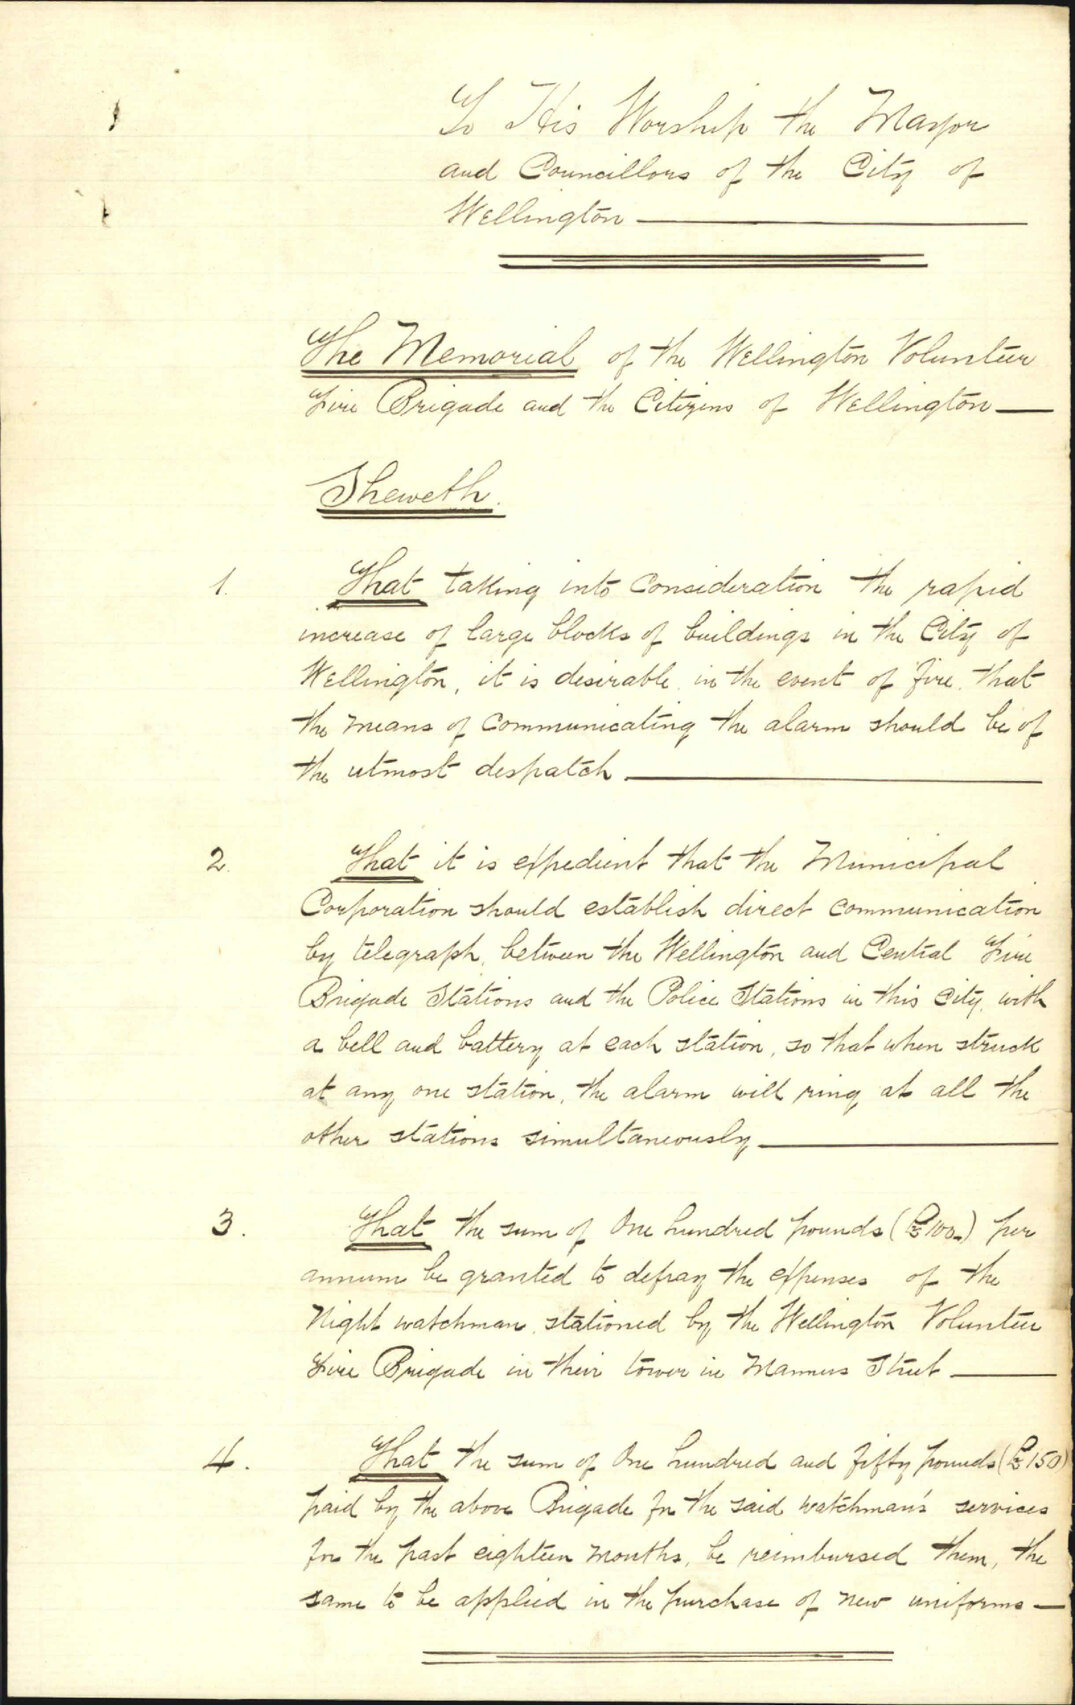 To His Worship the Mayor
and Councillors of the City of
Wellington
The Memorial of the Wellington Volunteer
Fire Brigade and the Citizens of Wellington
Sheweth.
1. That taking into consideration the rapid
increase of large blocks of buildings in the City of
Wellington, it is desirable in the event of fire, that
the means of communicating the alarm should be of
the utmost despatch
2. That it is expedient that the Municipal
Corporation should establish direct communication
by telegraph, between the Wellington and Central Fire
Brigade Stations and the Police Stations in this City, with
a bell and battery at each station, so that when struck
at any one station, the alarm will ring at all the
other stations simultaneously
3. That the sum of One hundred pounds (£100) per
annum be granted to defray the expenses of the
Night watchman, stationed by the Wellington Volunteer
Fire Brigade in their tower in Manners Street
4. That the sum of One hundred and fifty pounds (£150)
paid by the above Brigade for the said watchman's services
for the past eighteen months, be reimbursed them, the
same to be applied in the purchase of new uniforms